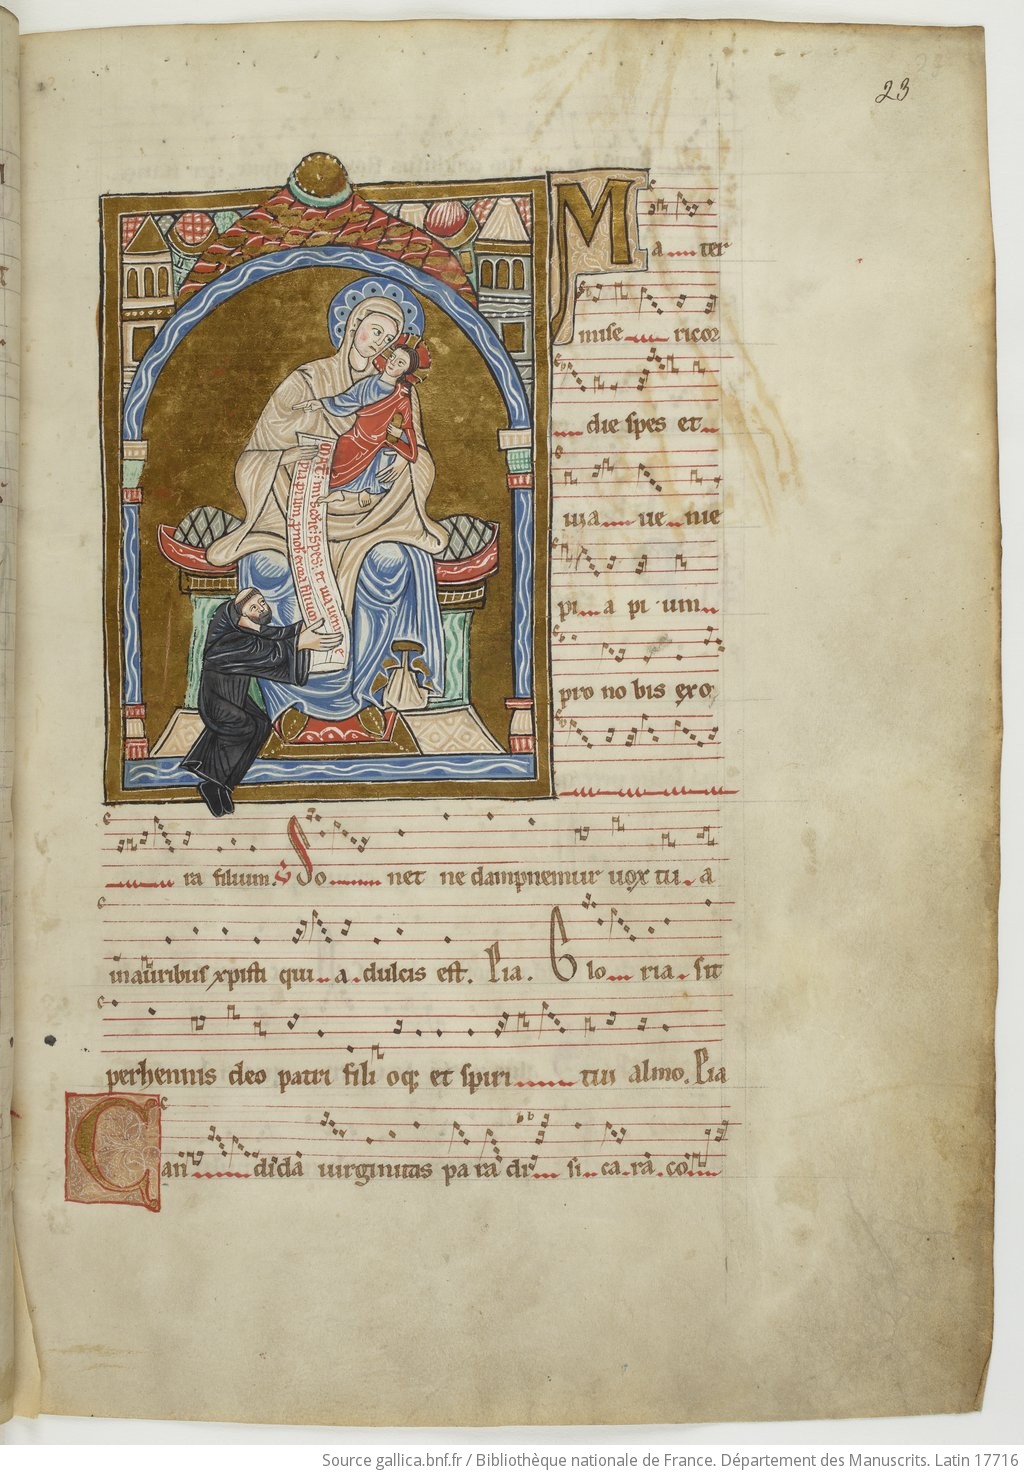 23
M
a ter
mise ricor
die spes et
uia ue nie
pi a pi um
pro no bis exo
ra filium. Do net ne dampnemur uox tu a
in auribus xpisti qui a dulcis est. Pia. Glo ria sit
perhennis deo patri fili oq; et spiri tui almo. Pia
Can dida uirginitas pa ra di si ca ra co
Source gallica.bnf.fr / Bibliothèque nationale de France. Département des Manuscrits. Latin 17716